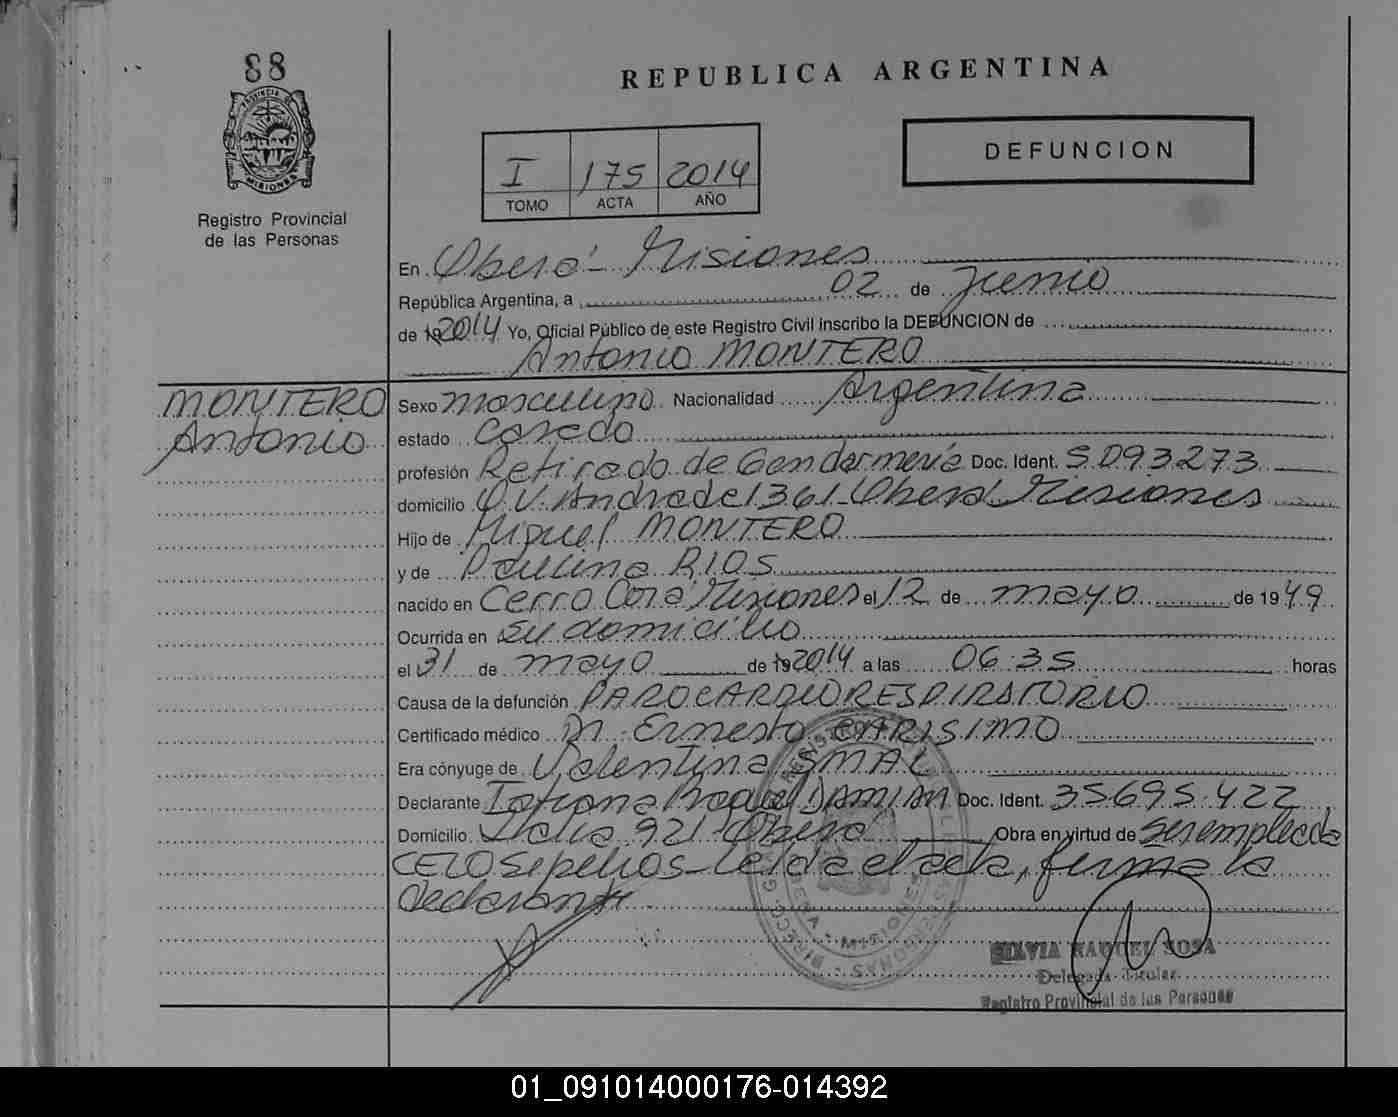 88
REPUBLICA ARGENTINA
PROVINCIA DE MISIONES
Registro Provincial
de las Personas
I 175 2014
TOMO ACTA AÑO
DEFUNCION
En Oberá - Misiones
República Argentina, a 02 de Junio
de 192014 Yo, Oficial Público de este Registro Civil inscribo la DEFUNCION de
Antonio MONTERO
MONTERO
Antonio
Sexo masculino Nacionalidad Argentina
estado Casado
profesión Retirado de Gendarmería Doc. Ident. 5.093.273
domicilio O.V. Andrade 1361 - Oberá Misiones
Hijo de Miguel MONTERO
y de Paulina RIOS
nacido en Cerro Corá Misiones el 12 de mayo de 1949
Ocurrida en su domicilio
el 31 de mayo de 192014 a las 06:35 horas
Causa de la defunción PARO CARDIO RESPIRATORIO
Certificado médico Dr. Ernesto CARISIMO
Era cónyuge de Valentina SMAL
Declarante Tatiana Raquel DAMIAN Doc. Ident. 35.695.422
Domicilio Italia 921 - Oberá Obra en virtud de ser empleada
CELO Sepelios - Leída el acta, firma la
declarante
SILVIA RAQUEL SOSA
Delegada Titular
Registro Provincial de las Personas
01_091014000176-014392